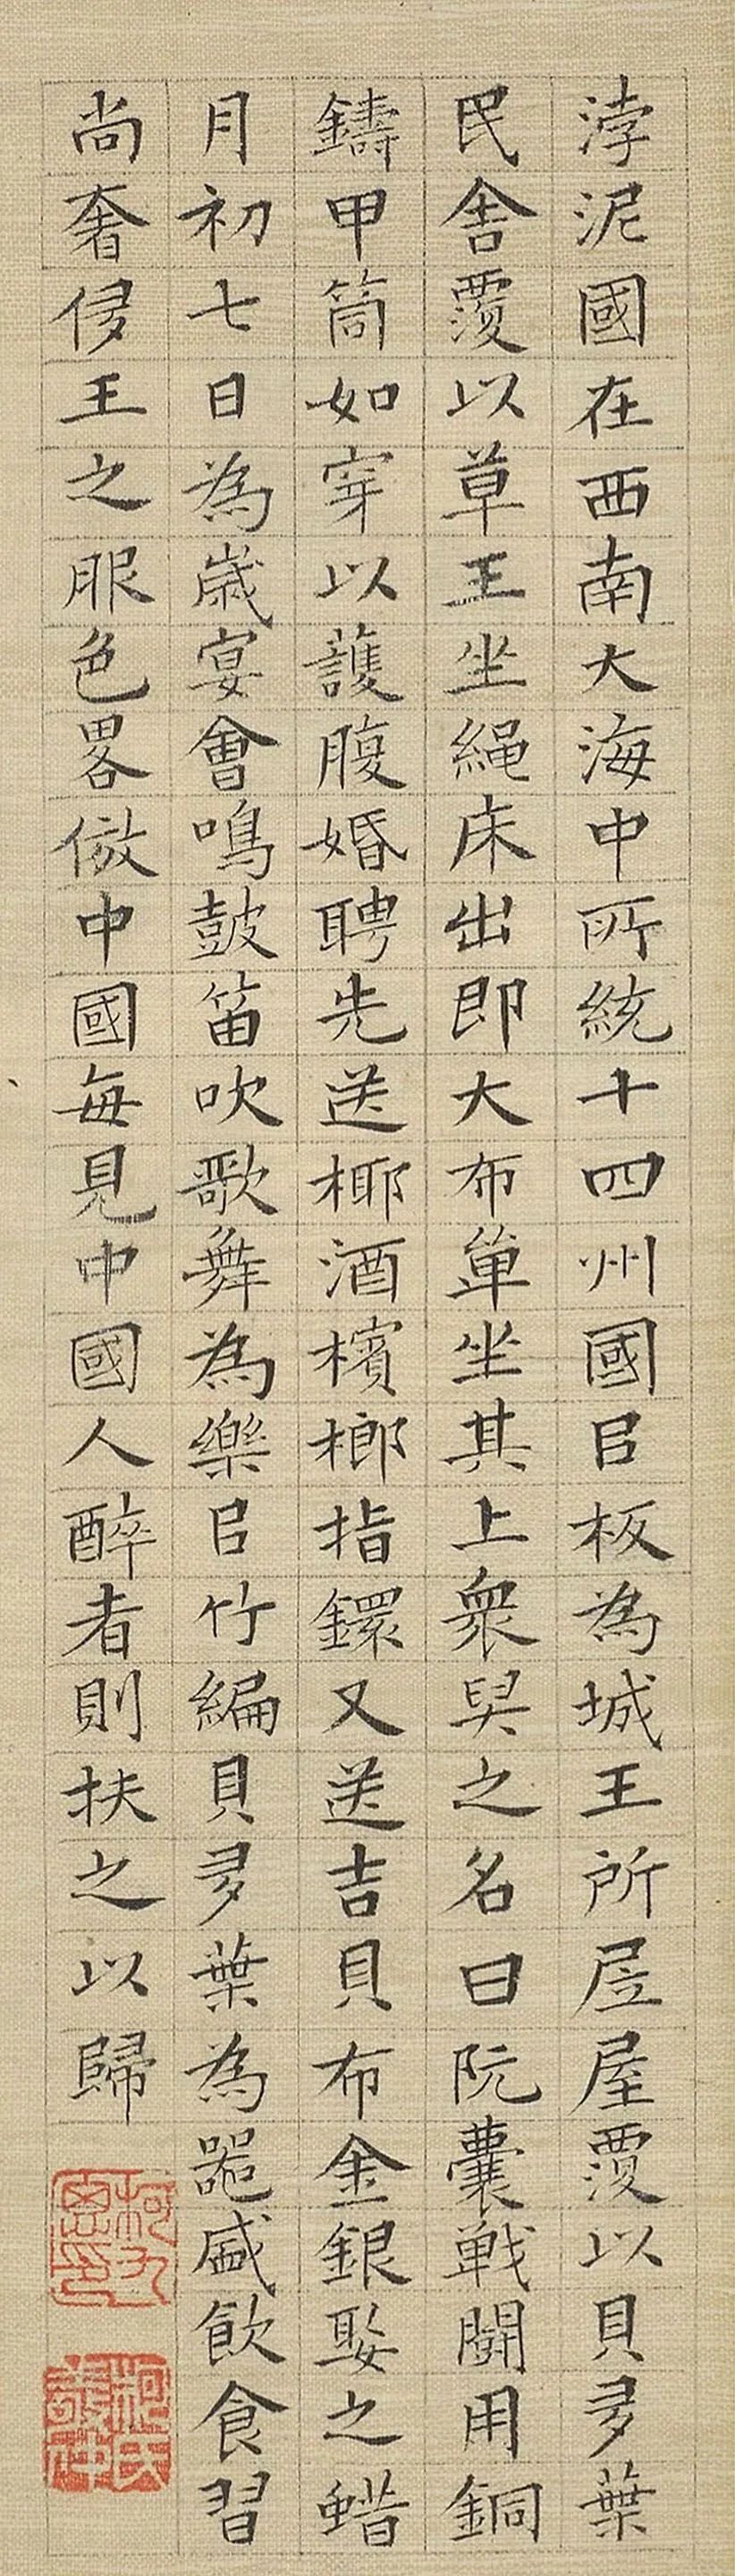 浡泥國在西南大海中所統十四州國㠯板為城王所居屋覆以貝多葉
民舍覆以草王坐繩床出即大布單坐其上衆舁之名曰阮囊戰鬪用銅
鑄甲筒如穿以護腹婚聘先送椰酒檳榔指鐶又送吉貝布金銀娶之蜡
月初七日為歲宴會鳴鼓笛吹歌舞為樂㠯竹編貝多葉為器盛飲食習
尚奢侈王之服色畧倣中國每見中國人醉者則扶之以歸
柯九思印
柯氏敬仲